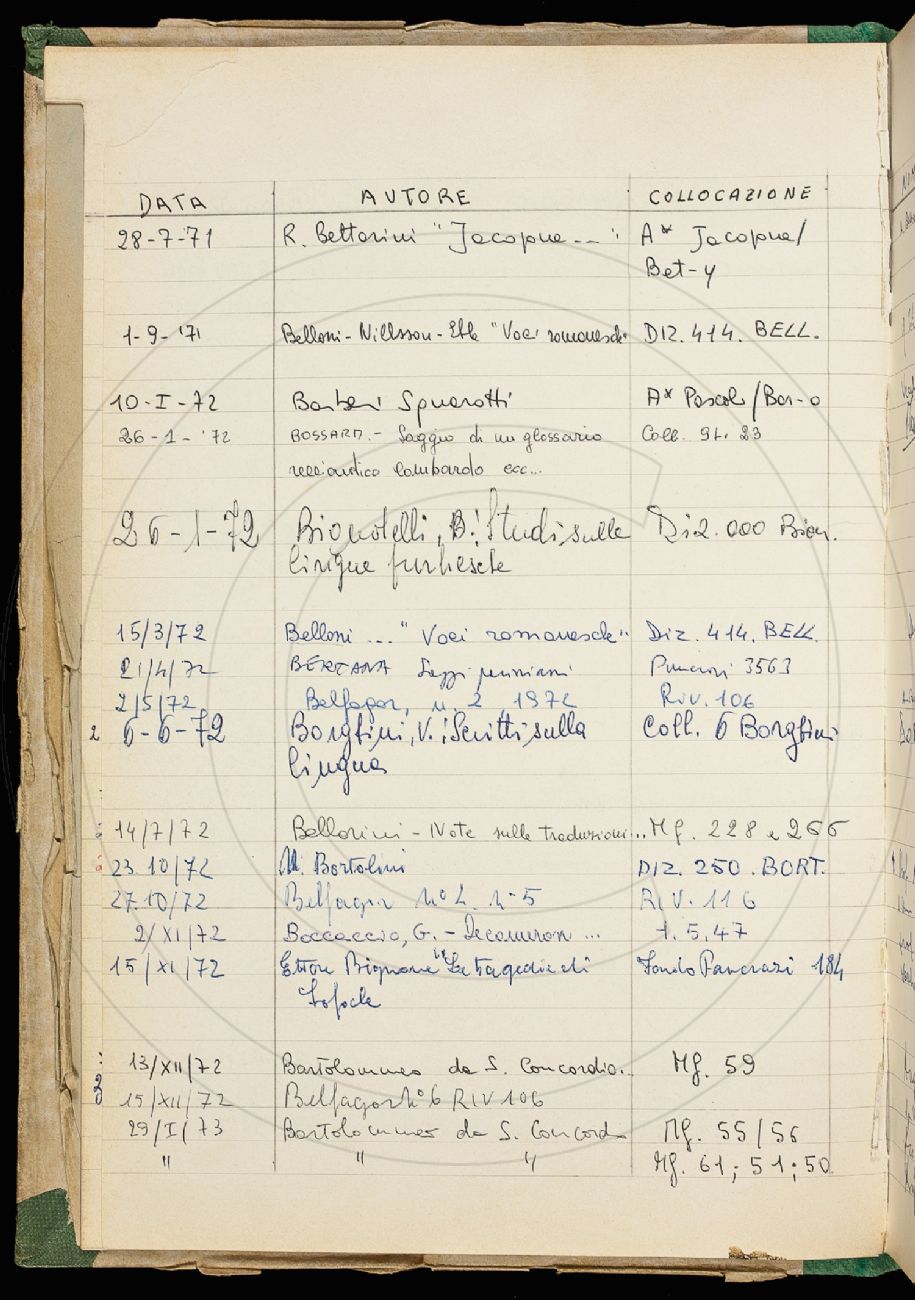 DATA AUTORE COLLOCAZIONE
28-7-'71 R. Bettarini "Jacopone --" A* Jacopone/
Bet-y
1-9-'71 Belloni-Nillsson-Ehle "Voci romanesche" DIZ. 414. BELL.
10-I-72 Barberi Squarotti A* Pascoli/Bar-o
26-1-'72 BOSSARD.- Saggio di un glossario Coll. 91. 23
lombardo ecc...
26-1-72 , B.: Studi sulle Diz. 000
lingue furbesche
15/3/72 Belloni ..." Voci romanesche" Diz. 414. BELL.
21/4/72 BERTANA Saggi 3563
2/5/72 Belfagor, n. 2, 1972 RIV. 106
2 6-6-72 Borghini, V.: Scritti sulla Coll. 6 Borghini
lingua
14/7/72 Bellorini - Note sulle traduzioni... Mf. 228 e 266
23.10/72 M. Bortolini DIZ. 250. BORT.
27.10/72 Belfagor n° 5 RIV. 116
2/XI/72 Boccaccio, G. - Decameron ... t. 5. 47
15/XI/72 Ettore Bignone "La tragedia di Fondo Pancrazi 184
Sofocle
13/XII/72 Bartolommeo da S. Concordio. Mf. 59
3 15/XII/72 Belfagor n° 6 RIV 106
29/I/73 Bartolommeo da S. Concordio Mf. 55/56
" " " Mf. 61; 51; 50